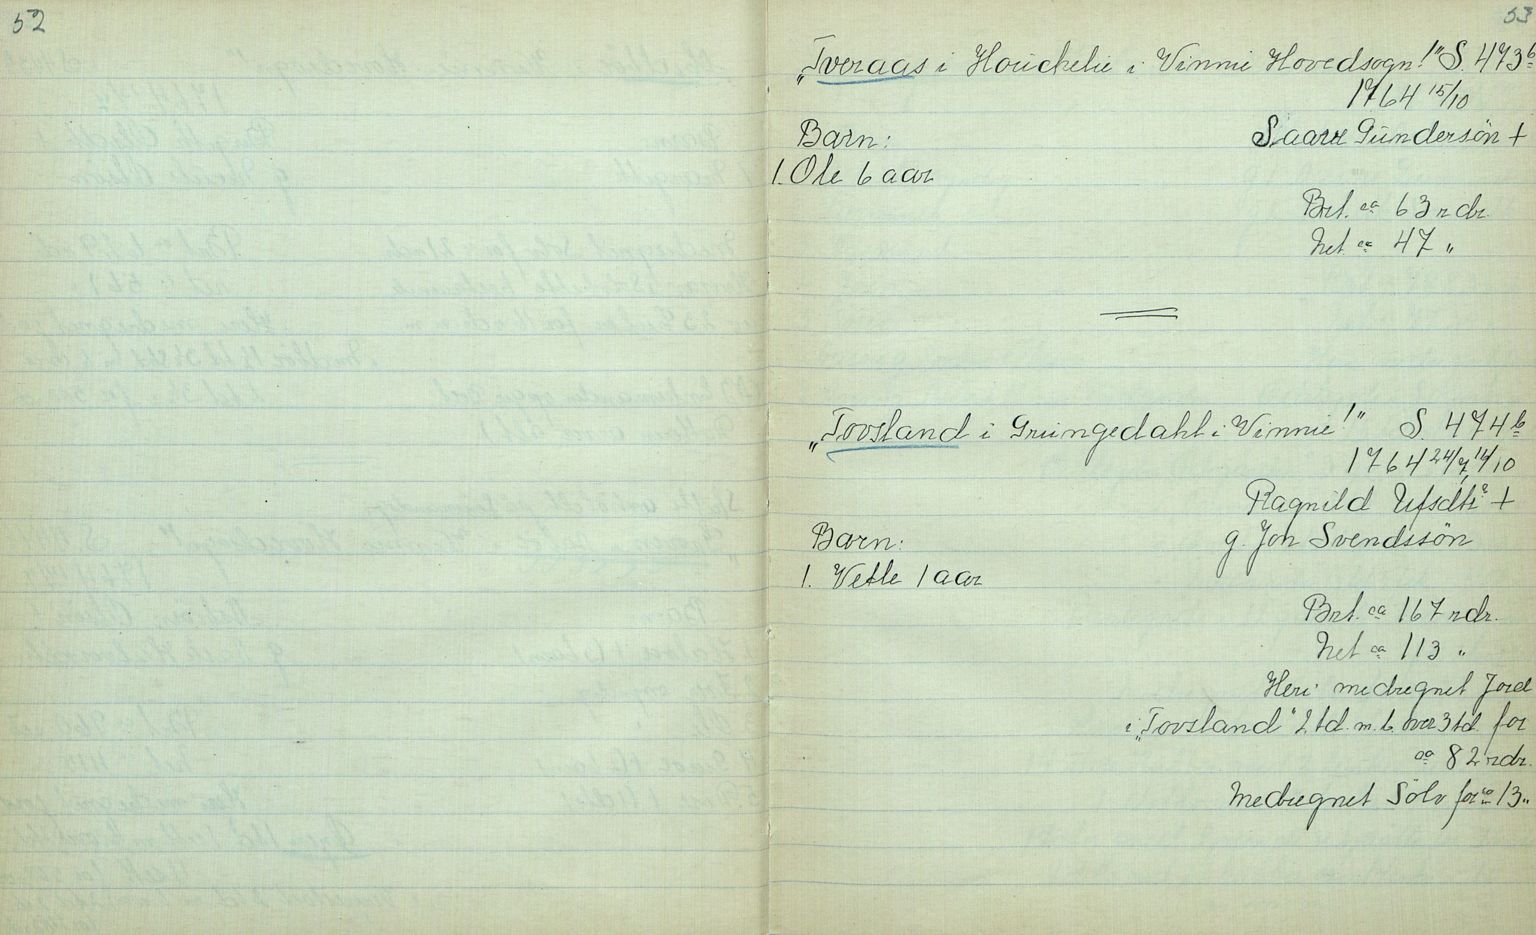 52
53
„Tveraas i Houchelie i Vinnie Hovedsogn!" S. 473b
1764 15/10
Barn: Saave Gundersön +
1. Ole 6 aar
Brt. ca 63 rdr.
Net. ca 47 „
„Tovsland i Grungedahl i Vinnie!" S. 474b
1764 24/7, 14/10
Ragnild +
Barn: g. Jon Svendssön
1. Vetle 1 aar
Brt. ca 167 rdr.
Net ca 113 „
Heri medregnet Jord
i „Tovsland" 2 td. m. b. over 3 td. for
ca 82 rdr.
Medregnet Sölv for ca 13 „